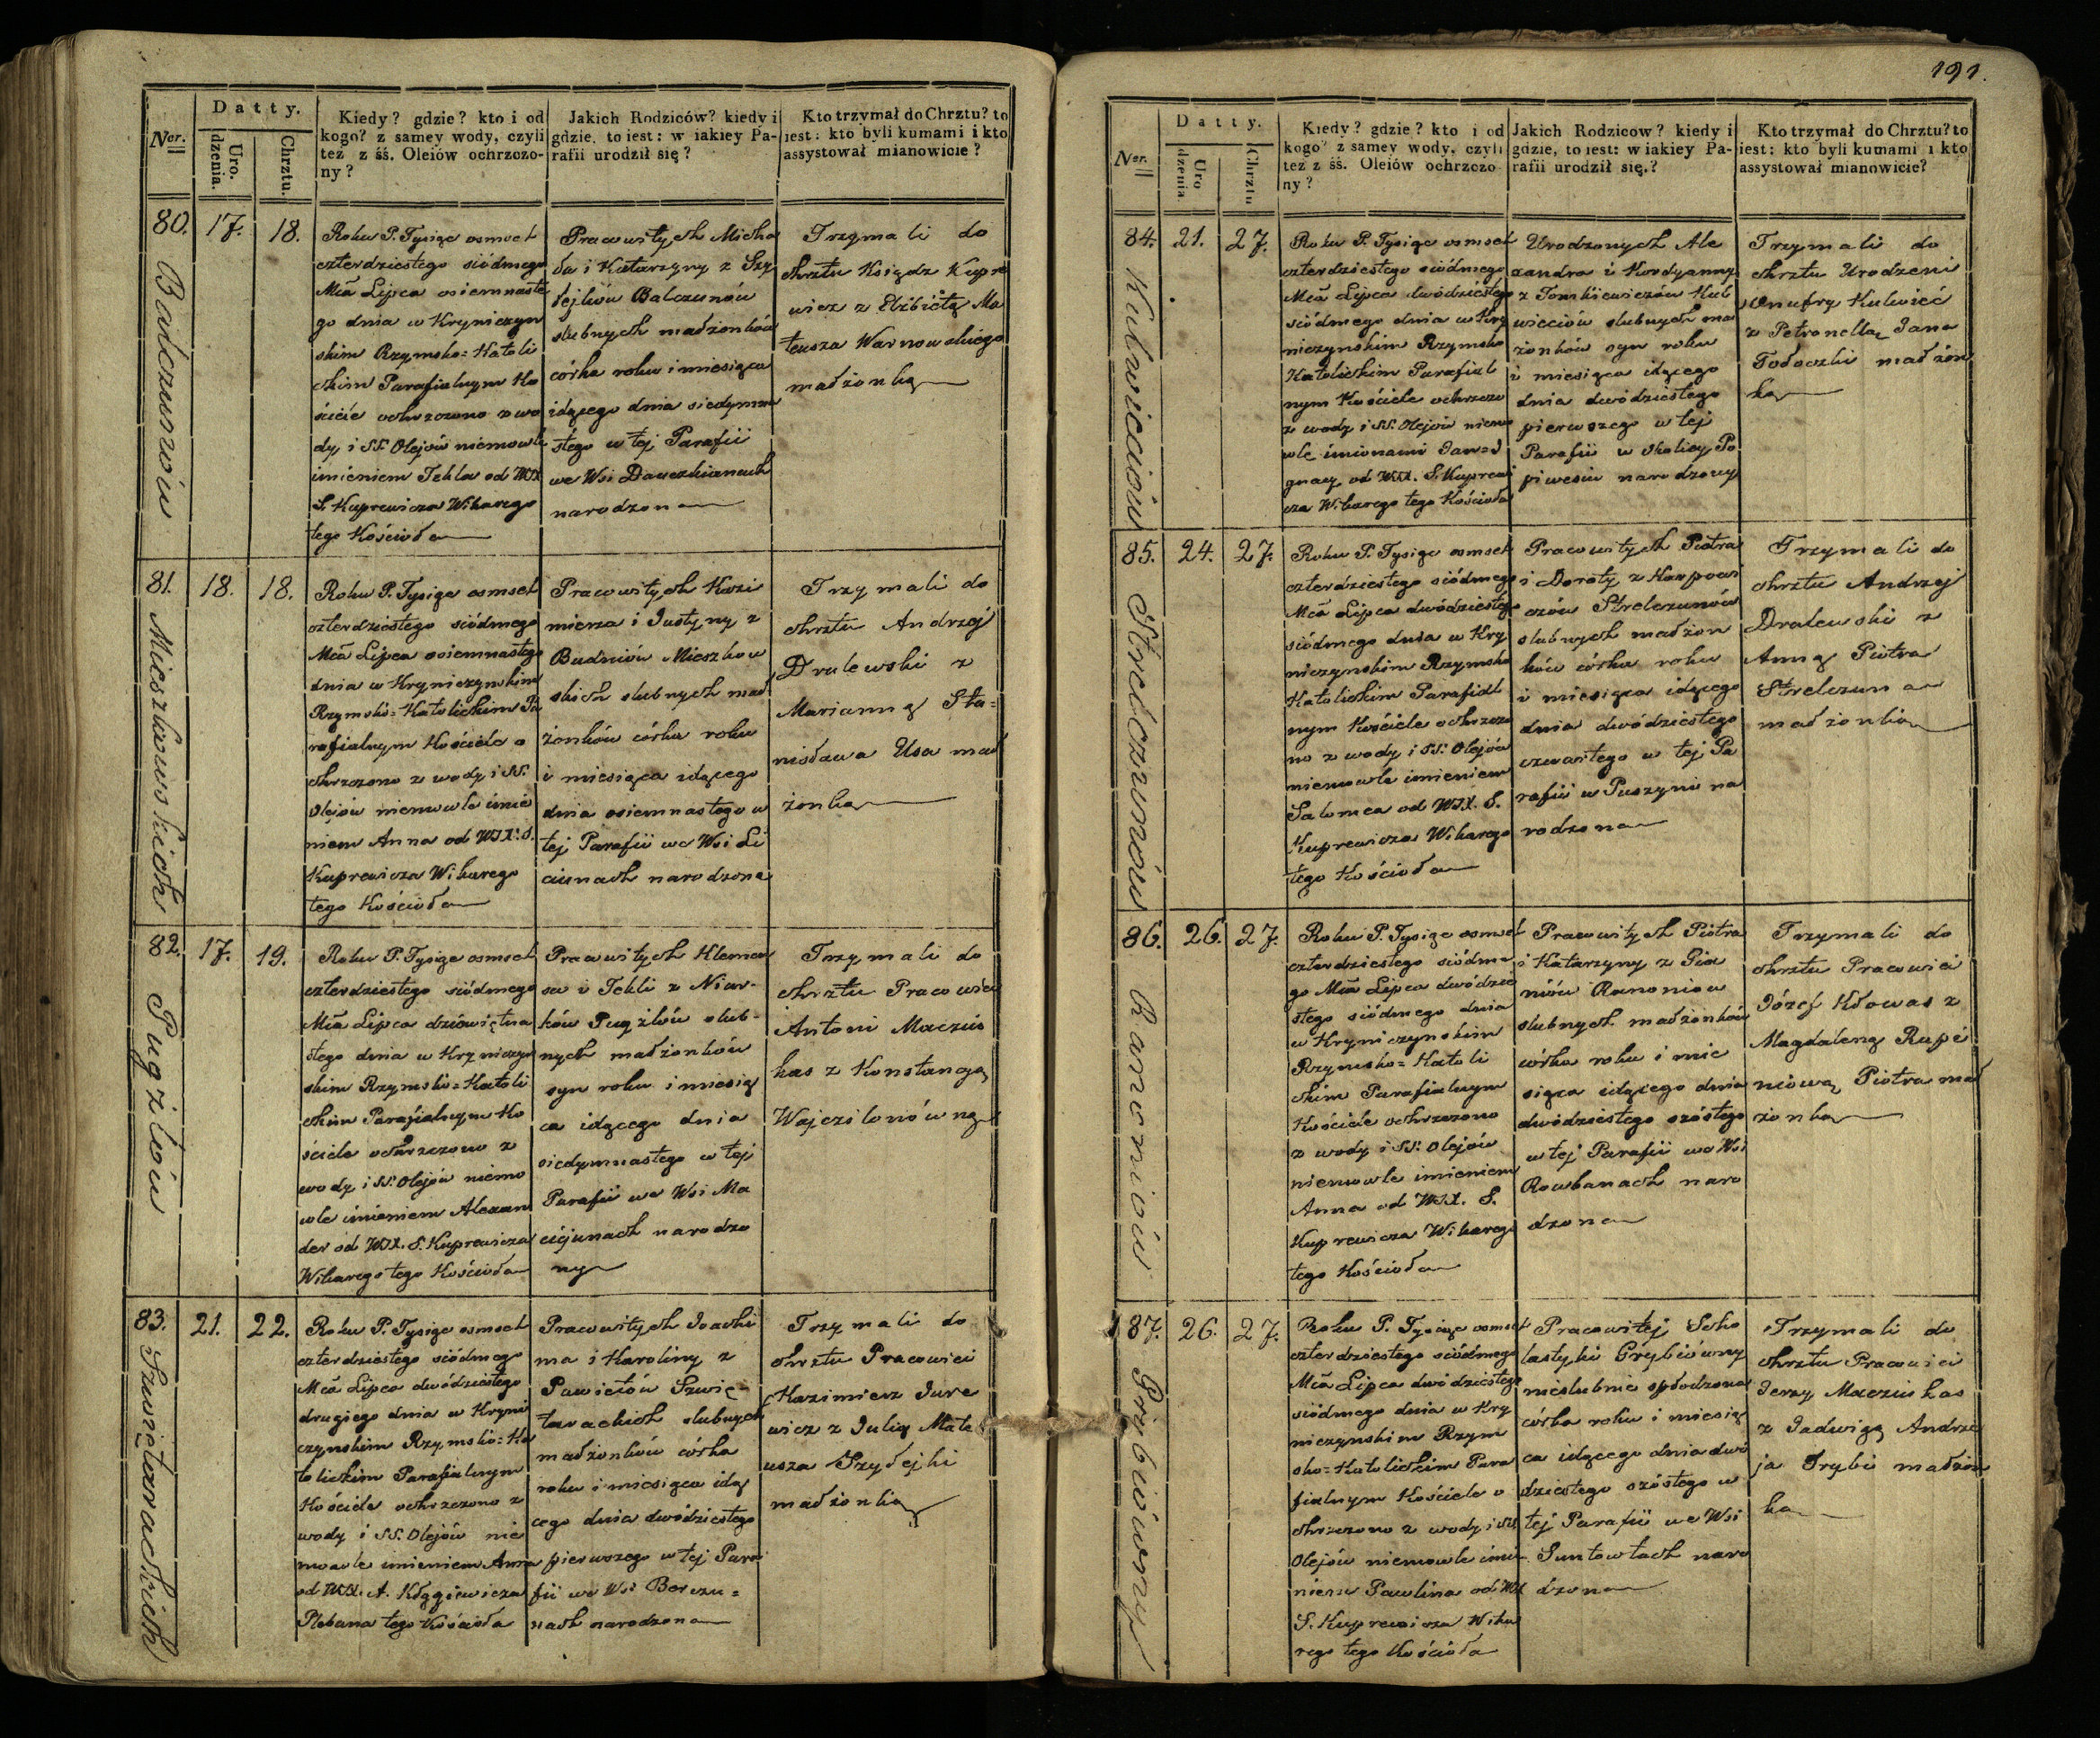 191.
Datty.
Ner.
Uro.
dzenia.
Chrztu.
Kiedy? gdzie? kto i od
kogo? z samey wody, czyli
też z śś. Oleiów ochrzczo-
ny?
Jakich Rodziców? kiedy i
gdzie, to iest: w iakiey Pa-
rafii urodził się?
Kto trzymał do Chrztu? to
iest: kto byli kumami i kto
assystował mianowicie?
80.
Balczunów
17.
18.
Roku P. Tysiąc osmset
czterdziestego siódmego
Mca Lipca osiemnaste
go dnia w Kryniczyn
skim Rzymsko=Katoli
ckim Parafialnym Ko
ściele ochrzczono z wo
dy i SS. Olejów niemowle
imieniem Tekla od WJX
S. Kuprewicza Wikarego
tego Kościoła
Pracowitych Micha
ła i Katarzyny z Szy
łejków Balczunów
slubnych małżonków
córka roku i miesiąca
idącego dnia siedymna
stego w tej Parafii
we Wsi Dauczkianach
narodzona
Trzymali do
chrztu Ksiądz Kupre
wicz z Elżbietą Ma
teusza Warnowskiego
małżonką
81.
Mieszkowskich
18.
18.
Roku P. Tysiąc osmset
czterdziestego siódmego
Mca Lipca osiemnastego
dnia w Kryniczynskim
Rzymsko=Katolickim Pa
rafialnym Kościele o
chrzczono z wody i SS.
Olejów niemowle imie
niem Anna od WJX. S.
Kuprewicza Wikarego
tego Kościoła
Pracowitych Kazi
mierza i Justyny z
Budniów Mieszkow
skich slubnych mał
żonków córka roku
i miesiąca idącego
dnia osiemnastego w
tej Parafii we Wsi Li
ciunach narodzona
Trzymali do
chrztu Andrzej
Drulewski z
Marianną Sta=
nisława Usa mał
żonką
82.
Pugżlów
17.
19.
Roku P. Tysiąc osmset
czterdziestego siódmego
Mca Lipca dziówiętna
stego dnia w Kryniczyn
skim Rzymsko=Katoli
ckim Parafialnym Ko
ściele ochrzczono z
wody i SS. Olejów niemo
wle imieniem Alexan
der od WJX. S. Kuprewicza
Wikarego tego Kościoła
Pracowitych Klemen
sa i Tekli z Niar-
ków Pugżlów slub-
nych małżonków
syn roku i miesią
ca idącego dnia
siedymnastego w tej
Parafii we Wsi Ma
ciejunach narodzo
ny
Trzymali do
chrztu Pracowici
Antoni Maczius
kas z Konstancyą
Wajczilonówną
83.
Szwiętarackich
21.
22.
Roku P. Tysiąc osmset
czterdziestego siódmego
Mca Lipca dwódziestego
drugiego dnia w Kryni
czynskim Rzymsko=Ka
tolickim Parafialnym
Kościele ochrzczono z
wody i SS. Olejów nie
mowle imieniem Anna
od WJX. A. Kłągiewicza
Plebana tego Kościoła
Pracowitych Joachi
ma i Karoliny z
Pawiełów Szwię-
tarackich slubnych
małżonków córka
roku i miesiąca idą
cego dnia dwódziestego
pierwszego w tej Para
fii we Wsi Borczu=
nach narodzona
Trzymali do
chrztu Pracowici
Kazimierz Jure
wicz z Julią Mate
usza Szyłejki
małżonką
Datty.
Ner.
Uro
dzenia
Chrztu
Kiedy? gdzie? kto i od
kogo? z samey wody, czyli
też z śś. Oleiów ochrzczo
ny?
Jakich Rodzicow? kiedy i
gdzie, to iest: w iakiey Pa-
rafii urodził się.?
Kto trzymał do Chrztu? to
iest: kto byli kumami i kto
assystował mianowicie?
84.
Kulwieciów
21.
27.
Roku P. Tysiąc osmset
czterdziestego siódmego
Mca Lipca dwódziestego
siódmego dnia w Kry
niczynskim Rzymsko
Katolickim Parafial
nym Kościele ochrzczo
z wody i SS. Olejów niemo
wle imionami Jan=I
gnacy od WJX. S. Kuprewi
cza Wikarego tego Kościoła
Urodzonych Ale
xandra i Kordyanny
z Tomkiewiczów Kul
wieciów slubnych ma
żonków syn roku
i miesiąca idącego
dnia dwódziestego
pierwszego w tej
Parafii w Okolicy Po
piwesiu narodzony
Trzymali do
chrztu Urodzeni
Onufry Kulwieć
z Petronellą Jana
Tołoczki małżon
ką
85.
Strelczunów
24.
27.
Roku P. Tysiąc osmset
czterdziestego siódmego
Mca Lipca dwódziestego
siódmego dnia w Kry
niczynskim Rzymsko
Katolickim Parafial
nym Kościele ochrzczo
no z wody i SS. Olejów
niemowle imieniem
Salomea od WJX. S.
Kuprewicza Wikarego
tego Kościoła
Pracowitych Piotra
i Doroty z Karpowi
czów Strelczunów
slubnych małżon
ków córka roku
i miesiąca idącego
dnia dwódziestego
czwartego w tej Pa
rafii w Puszyni na
rodzona
Trzymali do
chrztu Andrzej
Dralewski z
Anną Piotra
Strelczuna
małżonką
86.
Ramoniów
26.
27.
Roku P. Tysiąc osmset
czterdziestego siódme
go Mca Lipca dwódzie
stego siódmego dnia
w Kryniczynskim
Rzymsko=Katoli
ckim Parafialnym
Kościele ochrzczono
z wody i SS. Olejów
niemowle imieniem
Anna od WJX. S.
Kuprewicza Wikarego
tego Kościoła
Pracowitych Piotra
i Katarzyny z Gia
niów Ramoniow
slubnych małżonków
córka roku i mie
siąca idącego dnia
dwódziestego szóstego
w tej Parafii we Wsi
Rowbanach naro
dzona
Trzymali do
chrztu Pracowici
Józef Kłowas z
Magdaleną Rupé
niową Piotra mał
żonką
87.
Grybiówny
26.
27.
Roku P. Tysiąc osmset
czterdziestego siódmego
Mca Lipca dwódziestego
siódmego dnia w Kry
niczynskim Rzym
sko=Katolickim Para
fialnym Kościele o
chrzczono z wody i SS.
Olejów niemowle imie
niem Pawlina od WJX
S. Kuprewicza Wika
rego tego Kościoła
Pracowitej Scho
lastyki Grybiówny
nieslubnie spłodzona
córka roku i miesią
ca idącego dnia dwó
dziestego szóstego w
tej Parafii we Wsi
Suntowtach naro
dzona
Trzymali do
chrztu Pracowici
Jerzy Macziukas
z Jadwigą Andrze
ja Grybi małżon
ką